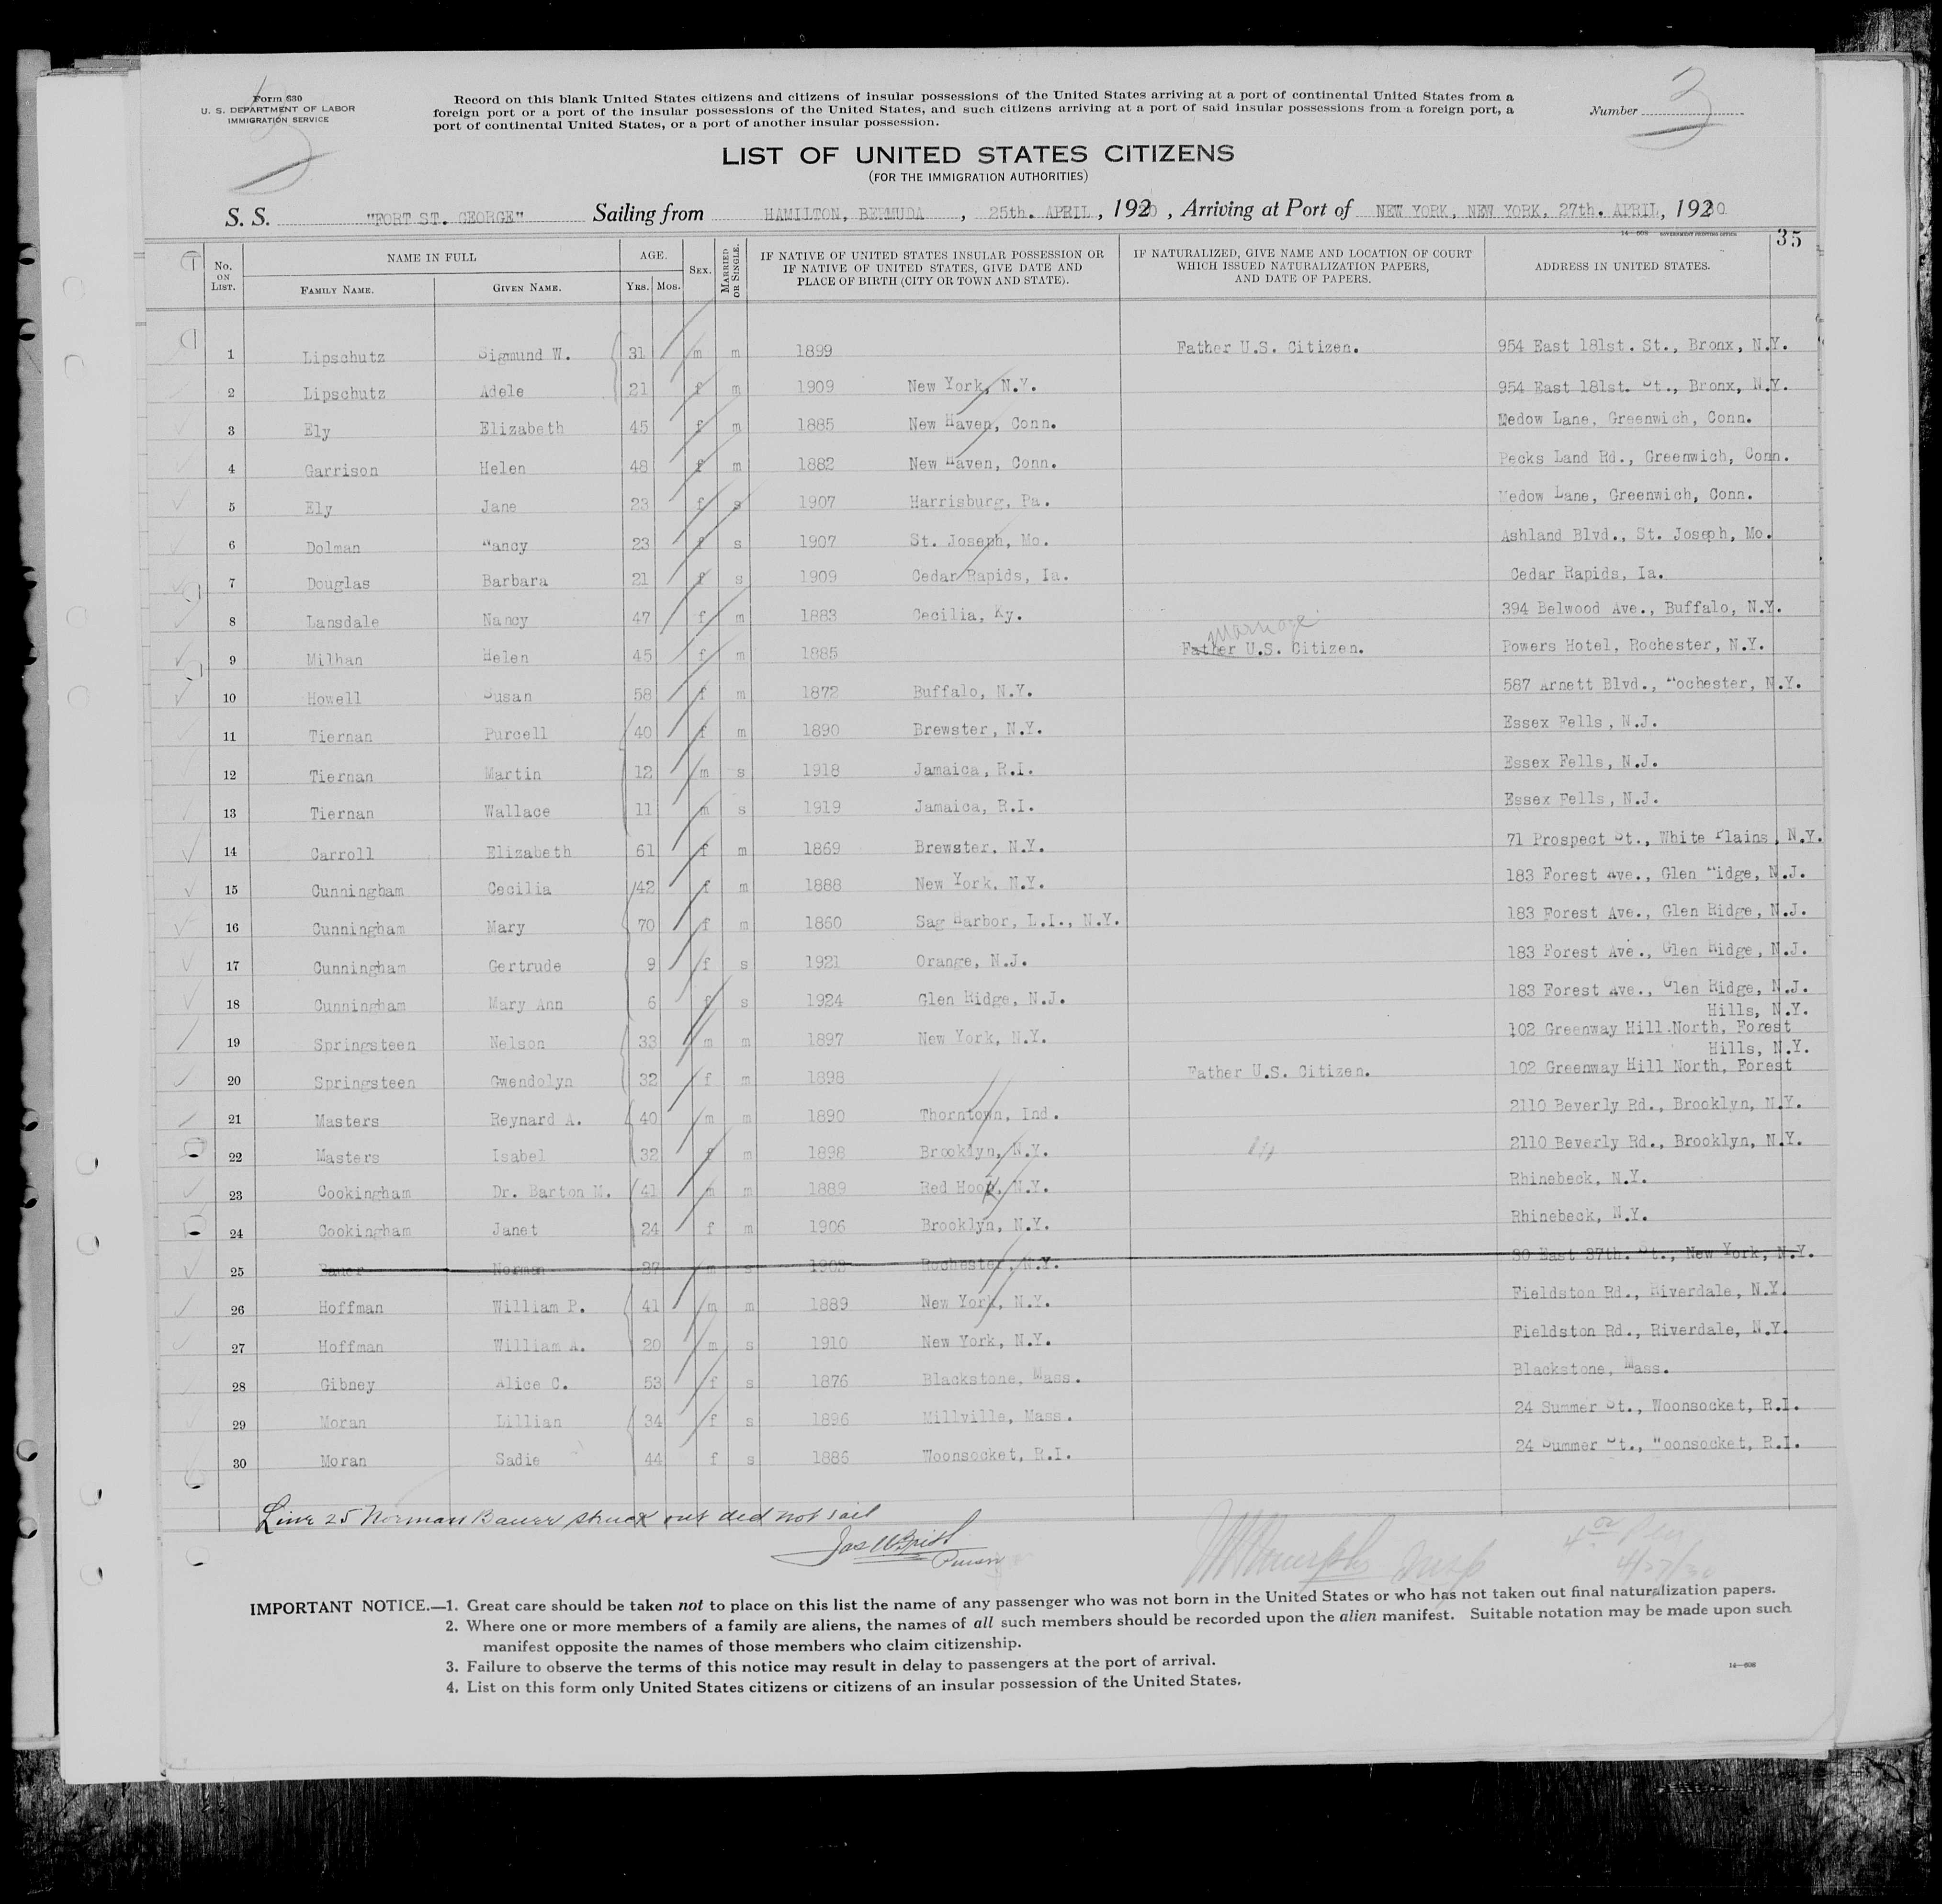 Form 630
U. S. DEPARTMENT OF LABOR
IMMIGRATION SERVICE
3
Record on this blank United States citizens and citizens of insular possessions of the United States arriving at a port of continental United States from a
foreign port or a port of the insular possessions of the United States, and such citizens arriving at a port of said insular possessions from a foreign port, a
port of continental United States, or a port of another insular possession.
Number 3
LIST OF UNITED STATES CITIZENS
(FOR THE IMMIGRATION AUTHORITIES)
S. S. "FORT ST. GEORGE" Sailing from HAMILTON, BERMUDA, 25th. APRIL, 1930, Arriving at Port of NEW YORK, NEW YORK, 27th. APRIL, 1930
14—608 GOVERNMENT PRINTING OFFICE
35
No. ON LIST. NAME IN FULL FAMILY NAME. GIVEN NAME. AGE. YRS. MOS. SEX. MARRIED OR SINGLE. IF NATIVE OF UNITED STATES INSULAR POSSESSION OR IF NATIVE OF UNITED STATES, GIVE DATE AND PLACE OF BIRTH (CITY OR TOWN AND STATE). IF NATURALIZED, GIVE NAME AND LOCATION OF COURT WHICH ISSUED NATURALIZATION PAPERS, AND DATE OF PAPERS. ADDRESS IN UNITED STATES.
1 Lipschutz Sigmund W. 31 m m 1899 Father U.S. Citizen. 954 East 181st. St., Bronx, N.Y.
2 Lipschutz Adele 21 f m 1909 New York, N.Y. 954 East 181st. St., Bronx, N.Y.
3 Ely Elizabeth 45 f m 1885 New Haven, Conn. Medow Lane, Greenwich, Conn.
4 Garrison Helen 48 f m 1882 New Haven, Conn. Pecks Land Rd., Greenwich, Conn.
5 Ely Jane 23 f s 1907 Harrisburg, Pa. Medow Lane, Greenwich, Conn.
6 Dolman Nancy 23 f s 1907 St. Joseph, Mo. Ashland Blvd., St. Joseph, Mo.
7 Douglas Barbara 21 f s 1909 Cedar Rapids, Ia. Cedar Rapids, Ia.
8 Lansdale Nancy 47 f m 1883 Cecilia, Ky. 394 Belwood Ave., Buffalo, N.Y.
marriage
9 Milhan Helen 45 f m 1885 Father U.S. Citizen. Powers Hotel, Rochester, N.Y.
10 Howell Susan 58 f m 1872 Buffalo, N.Y. 587 Arnett Blvd., Rochester, N.Y.
11 Tiernan Purcell 40 f m 1890 Brewster, N.Y. Essex Fells, N.J.
12 Tiernan Martin 12 m s 1918 Jamaica, R.I. Essex Fells, N.J.
13 Tiernan Wallace 11 m s 1919 Jamaica, R.I. Essex Fells, N.J.
14 Carroll Elizabeth 61 f m 1869 Brewster, N.Y. 71 Prospect St., White Plains, N.Y.
15 Cunningham Cecilia 42 f m 1888 New York, N.Y. 183 Forest Ave., Glen Ridge, N.J.
16 Cunningham Mary 70 f m 1860 Sag Harbor, L.I., N.Y. 183 Forest Ave., Glen Ridge, N.J.
17 Cunningham Gertrude 9 f s 1921 Orange, N.J. 183 Forest Ave., Glen Ridge, N.J.
18 Cunningham Mary Ann 6 f s 1924 Glen Ridge, N.J. 183 Forest Ave., Glen Ridge, N.J.
Hills, N.Y.
19 Springsteen Nelson 33 m m 1897 New York, N.Y. 102 Greenway Hill North, Forest
Hills, N.Y.
20 Springsteen Gwendolyn 32 f m 1898 Father U.S. Citizen. 102 Greenway Hill North, Forest
21 Masters Reynard A. 40 m m 1890 Thorntown, Ind. 2110 Beverly Rd., Brooklyn, N.Y.
22 Masters Isabel 32 f m 1898 Brooklyn, N.Y. 2110 Beverly Rd., Brooklyn, N.Y.
23 Cookingham Dr. Barton M. 41 m m 1889 Red Hook, N.Y. Rhinebeck, N.Y.
24 Cookingham Janet 24 f m 1906 Brooklyn, N.Y. Rhinebeck, N.Y.
25 Bauer Norman 27 m s 1903 Rochester, N.Y. 30 East 37th. St., New York, N.Y.
26 Hoffman William P. 41 m m 1889 New York, N.Y. Fieldston Rd., Riverdale, N.Y.
27 Hoffman William A. 20 m s 1910 New York, N.Y. Fieldston Rd., Riverdale, N.Y.
28 Gibney Alice C. 53 f s 1876 Blackstone, Mass. Blackstone, Mass.
29 Moran Lillian 34 f s 1896 Millville, Mass. 24 Summer St., Woonsocket, R.I.
30 Moran Sadie 44 f s 1886 Woonsocket, R.I. 24 Summer St., Woonsocket, R.I.
Line 25 Norman Bauer struck out did not sail
Purser
4/27/30
IMPORTANT NOTICE.—1. Great care should be taken not to place on this list the name of any passenger who was not born in the United States or who has not taken out final naturalization papers.
2. Where one or more members of a family are aliens, the names of all such members should be recorded upon the alien manifest. Suitable notation may be made upon such
manifest opposite the names of those members who claim citizenship.
3. Failure to observe the terms of this notice may result in delay to passengers at the port of arrival.
14—608
4. List on this form only United States citizens or citizens of an insular possession of the United States.